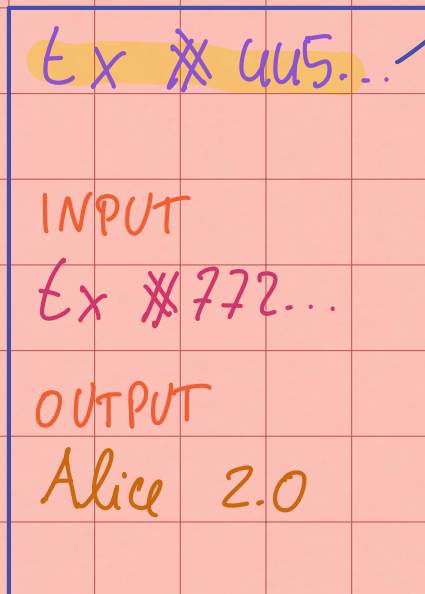 Ex # 445...
INPUT
Ex # 772...
OUTPUT
Alice 2.0